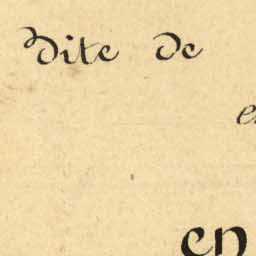 dite de
e
en